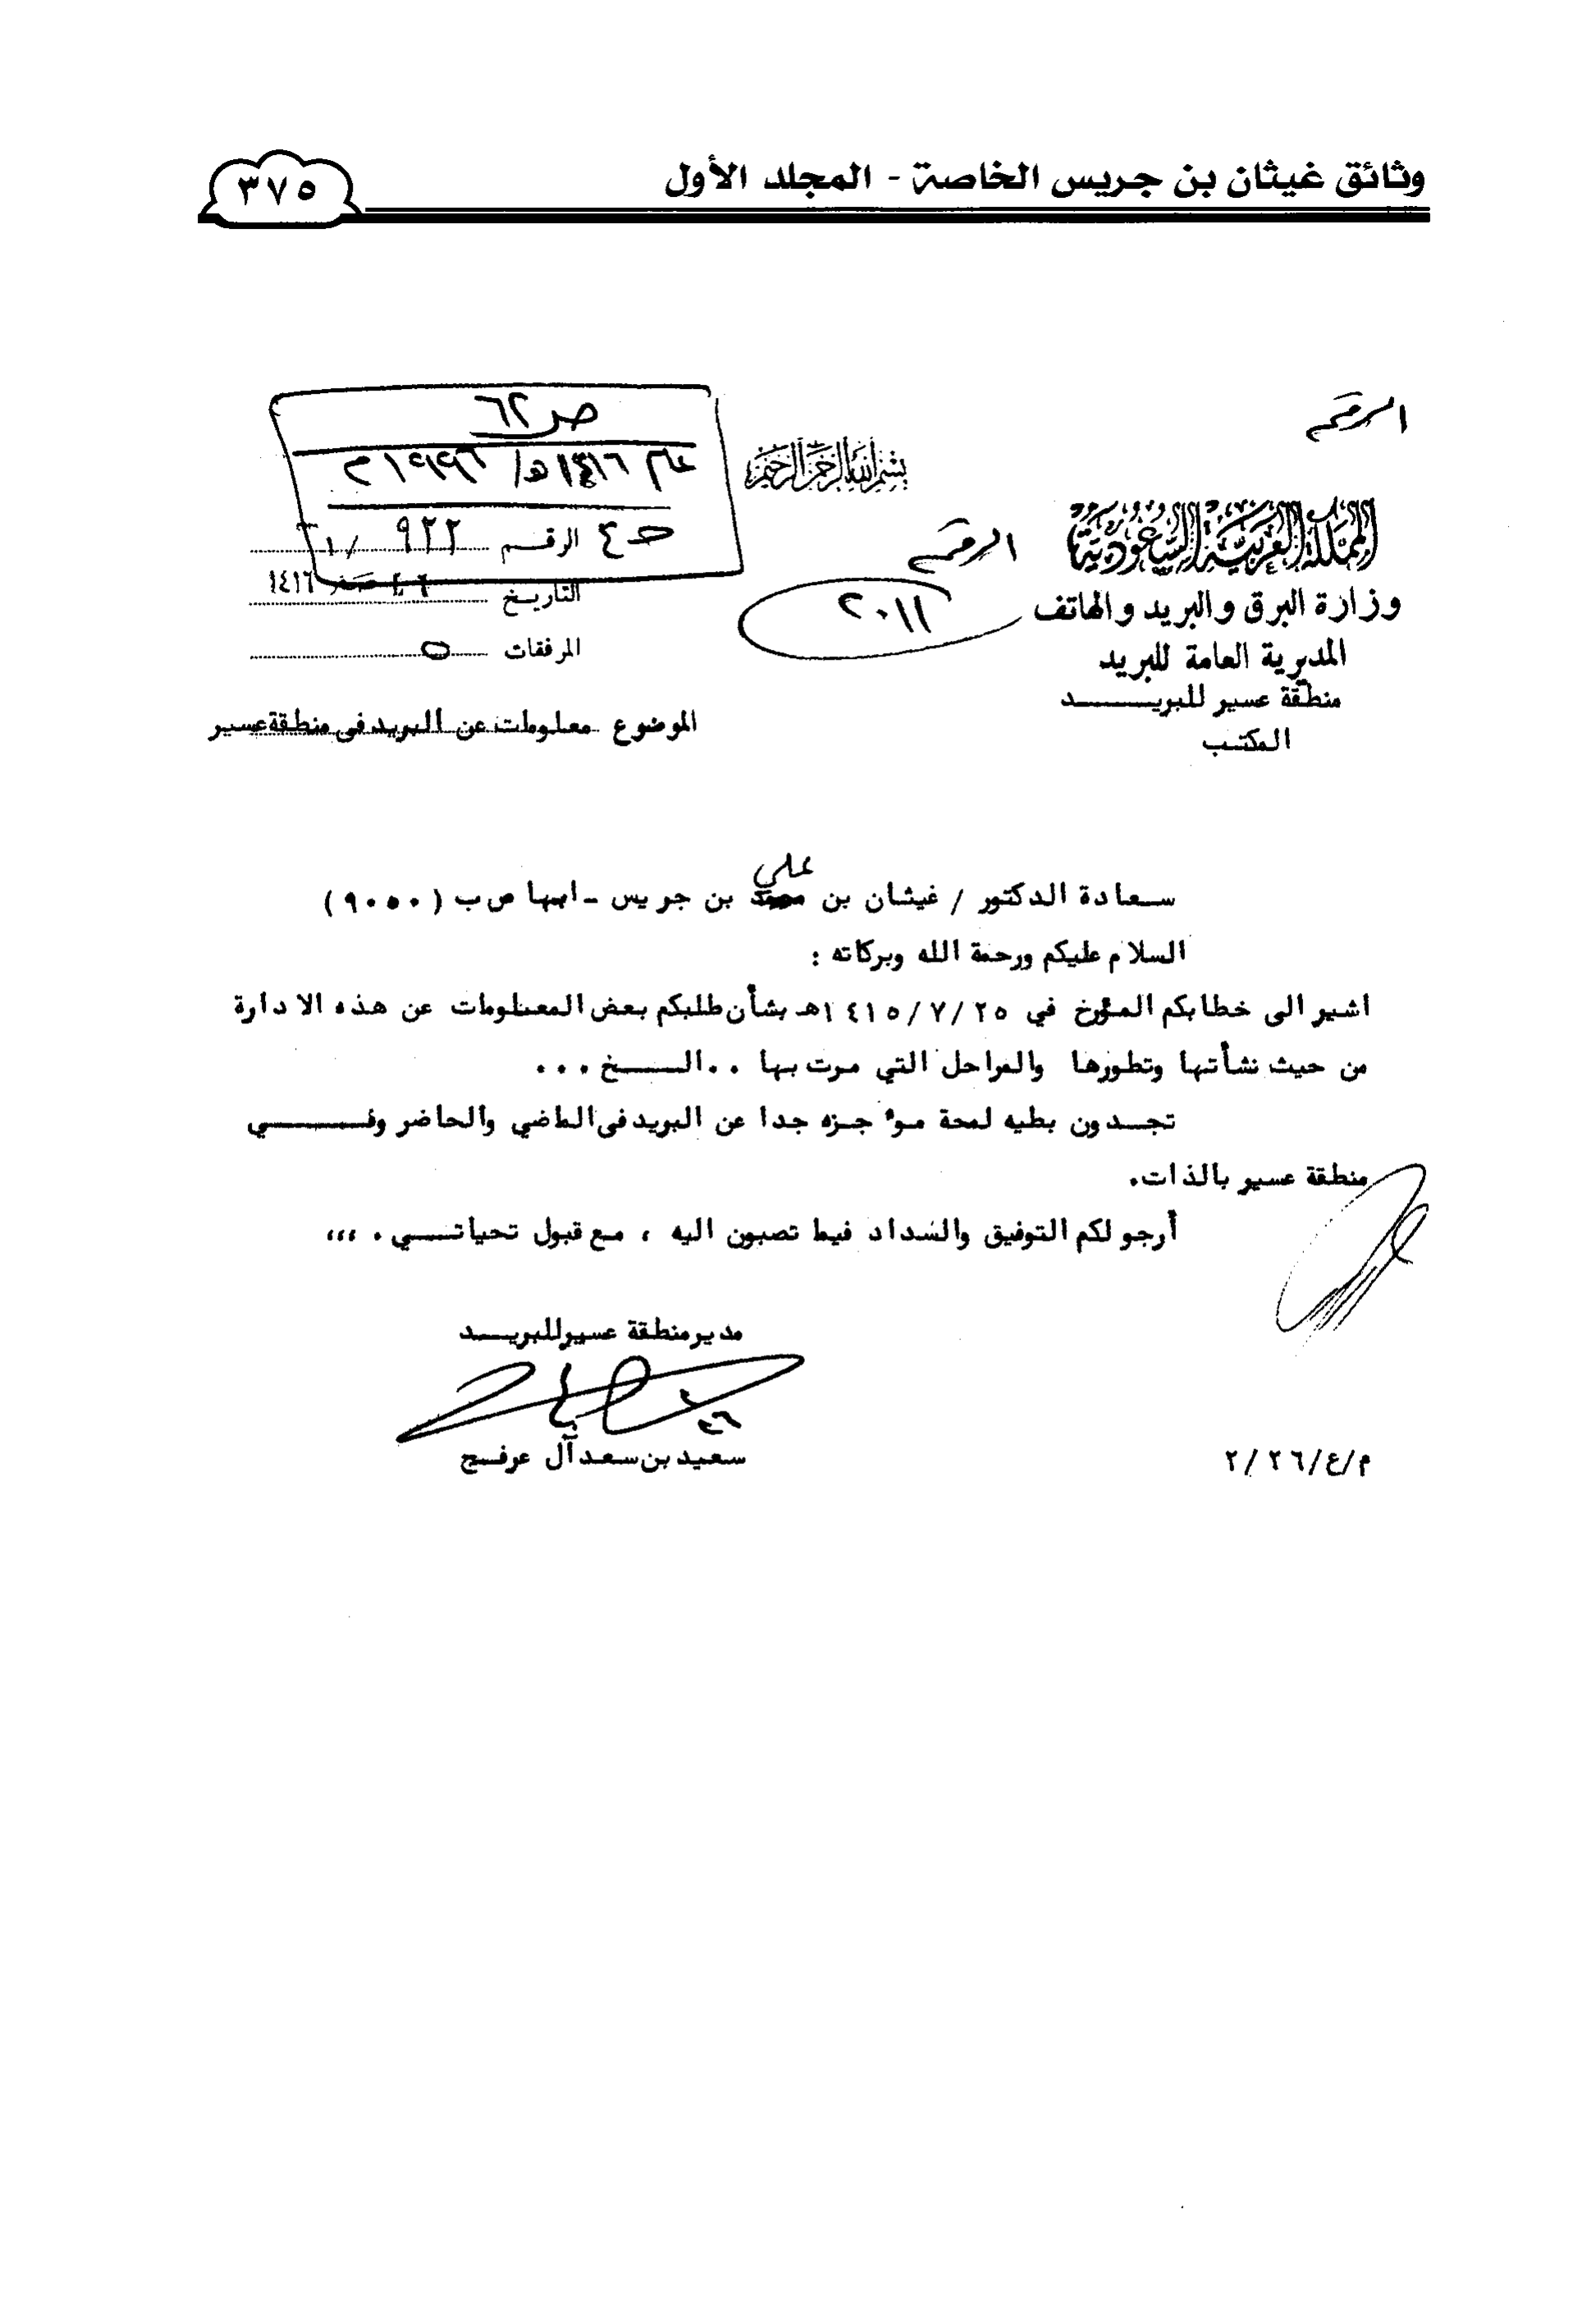 وثائق غيثان بن جريس الخاصة - المجلد الأول
٣٧٥
الرقم
ص ٦٢
عام ١٤١٦هـ/ ١٩٩٦م
بسم الله الرحمن الرحيم
المملكة العربية السعودية
وزارة البرق والبريد والهاتف
المديرية العامة للبريد
منطقة عسير للبريـــد
المكتب
الرقم
٢٠١١
ح٤
الرقم ٩٢٢ /١
التاريخ ٢٦ صفر ١٤١٦
المرفقات ٥
الموضوع معلومات عن البريد فى منطقة عسير
سعادة الدكتور / غيثان بن علي بن جريس - ابها ص ب ( ٩٠٥٠ )
السلام عليكم ورحمة الله وبركاته :
اشير الى خطابكم المؤرخ في ١٤١٥/٧/٢٥هـ بشأن طلبكم بعض المعلومات عن هذه الادارة
من حيث نشأتها وتطورها والمراحل التي مرت بها ..الــــخ ...
تجدون بطيه لمحة موءجزه جدا عن البريد فى الماضي والحاضر وفــــي
منطقة عسير بالذات.
أرجو لكم التوفيق والسداد فيما تصبون اليه ، مع قبول تحياتـــي . ،،،
مدير منطقة عسير للبريـــد
سعيد بن سعد آل عرفج
م/ع/٢/٢٦